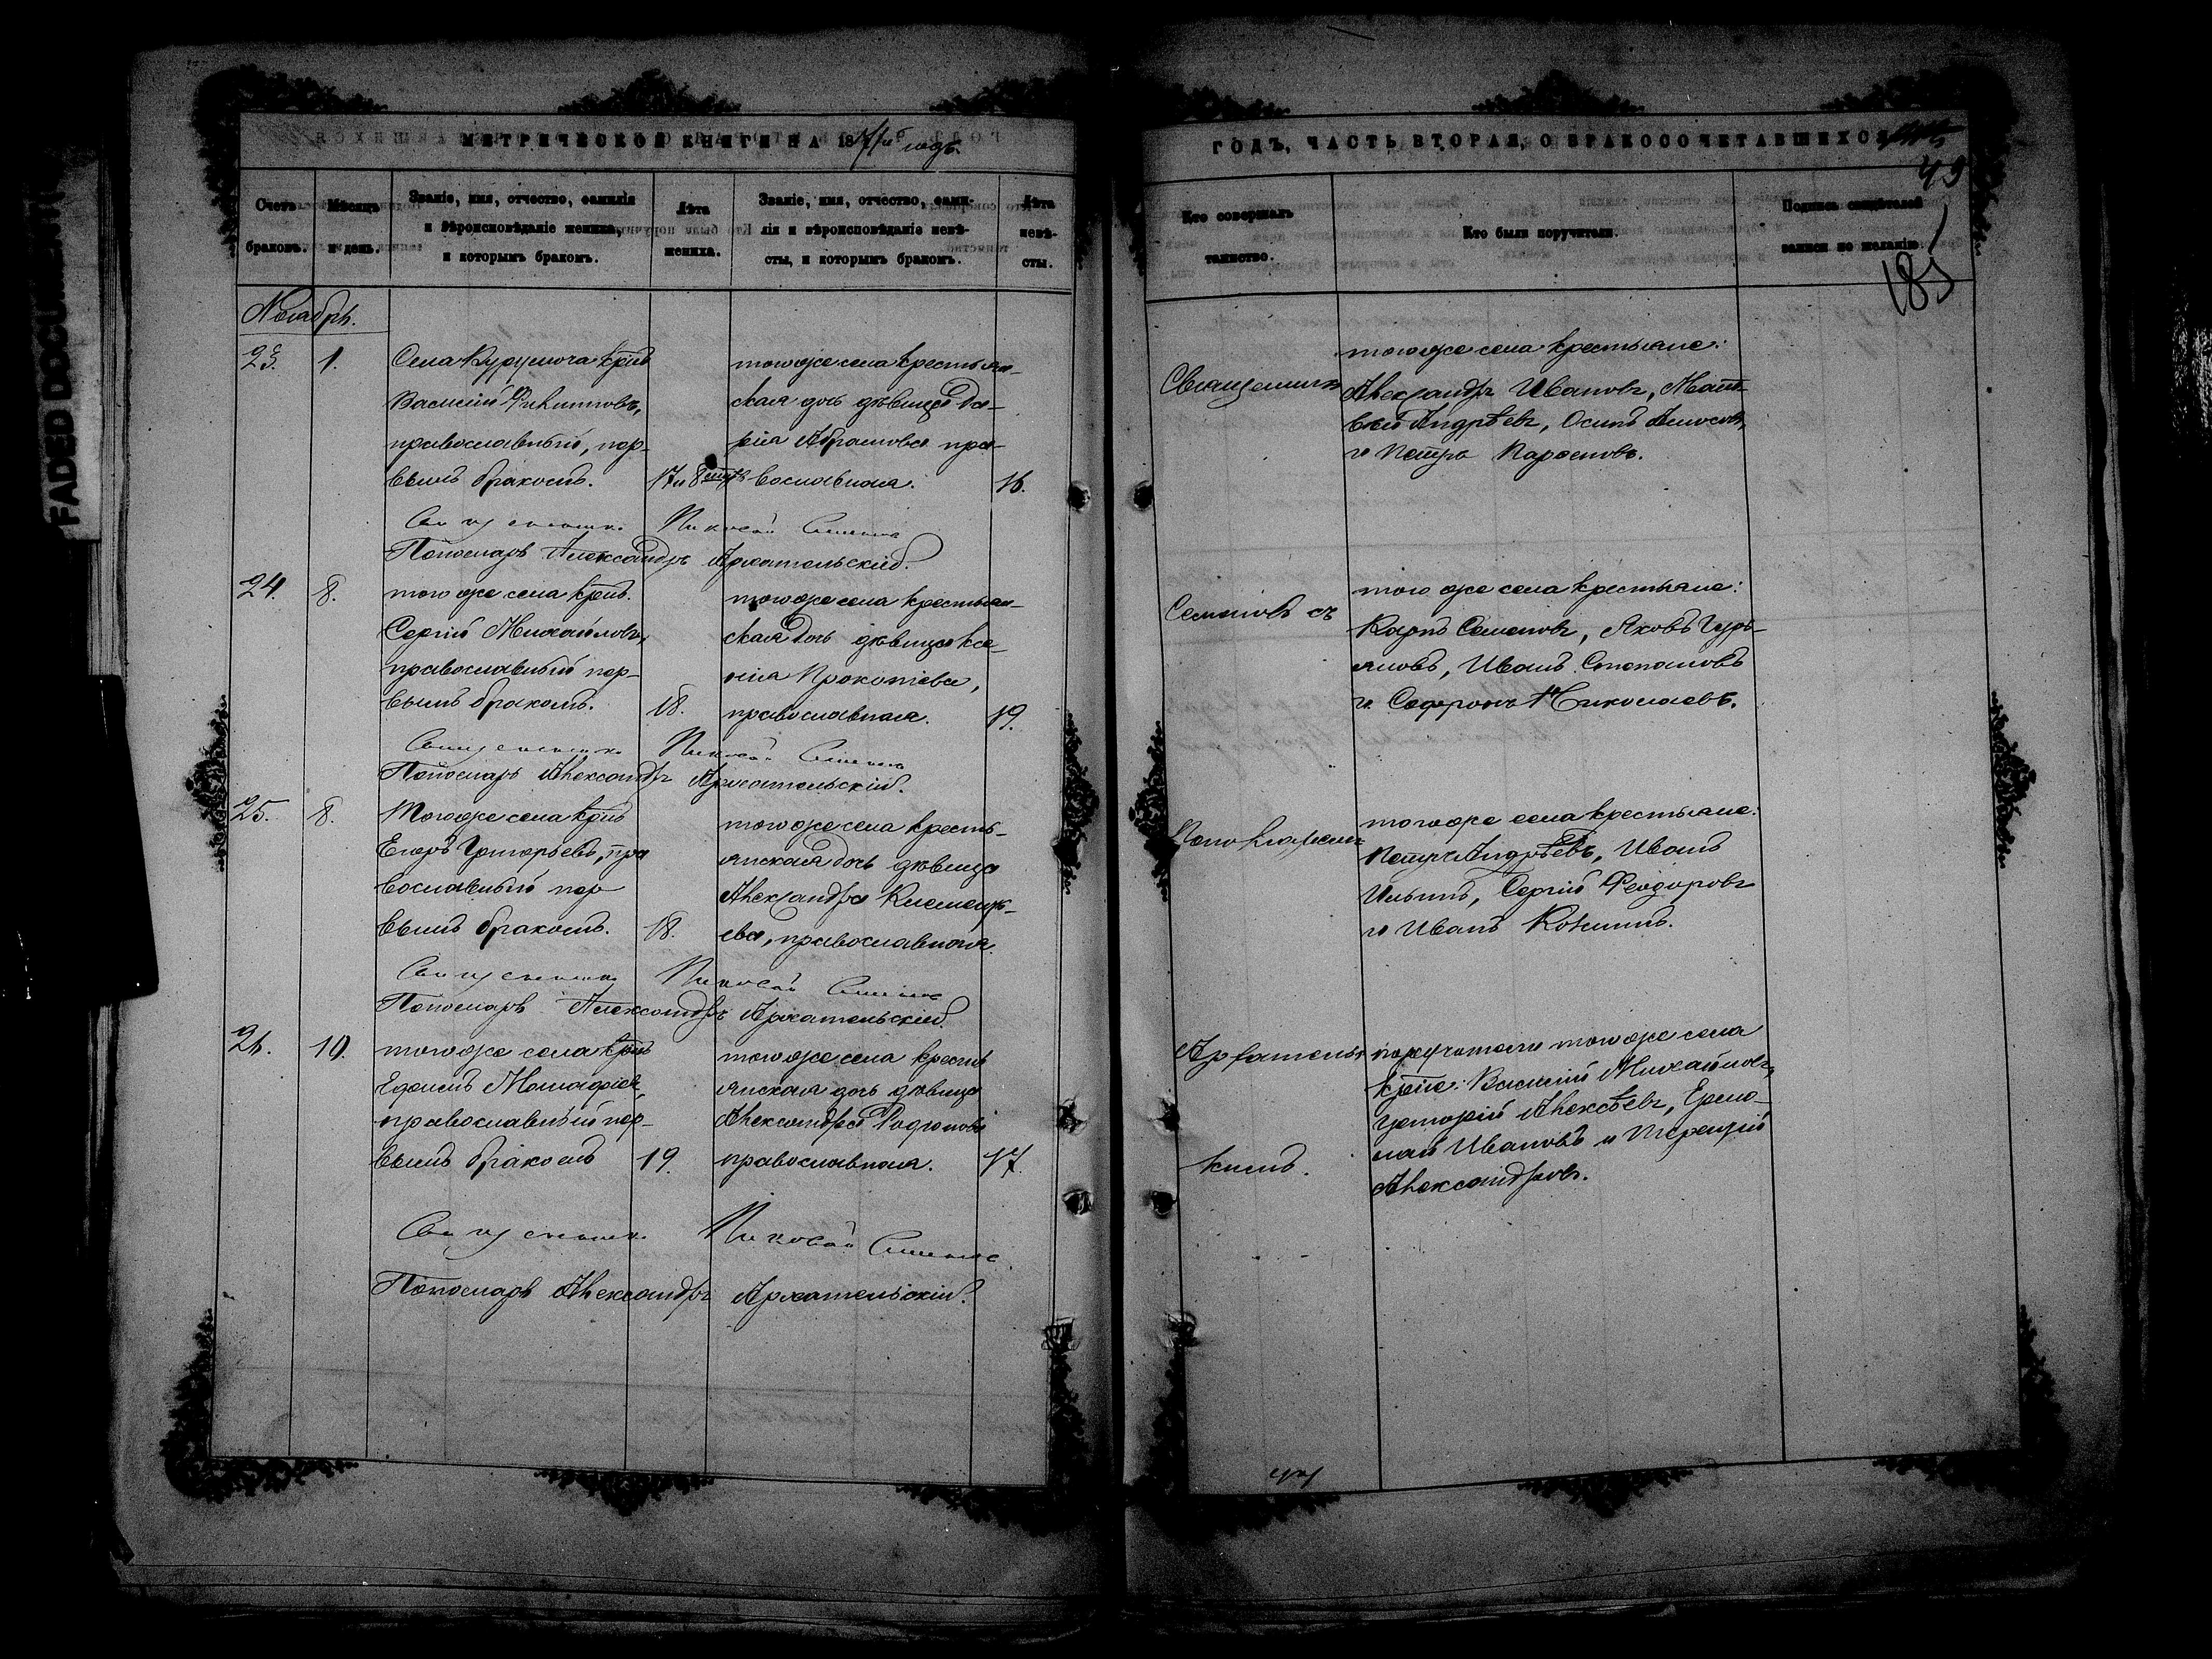 FADED DOCUMENT(
МЕТРИЧЕСКОЙ КНИГИ НА 18
годъ.
Счетъ браковъ.
Мѣсяцъ и день.
Званіе, имя, отчество, фамилія
и вѣроисповѣданіе жениха,
и которымъ бракомъ.
Лѣта
жениха.
Званіе, имя, отчество, фами-
лія и вѣроисповѣданіе невѣ-
сты, и которымъ бракомъ.
Лѣта
невѣ-
сты.
Ноябрь.
23. 1.
Села крнъ
Василій Филипповъ,
православный, пер-
вымъ бракомъ.
17 и 8
тогоже села крестьян-
ская дочь дѣвица Да-
рія Абрамова пра-
вославная.
16.
Священникъ Николай
Пономарь Александръ Архангельскій.
24. 8.
тогоже села крнъ.
Сергій Михайловъ,
православный пер-
вымъ бракомъ.
18.
тогоже села крестьян-
ская дочь дѣвица Ксе-
нія Прокопіева,
православная.
19.
Священникъ Николай
Пономарь Александръ Архангельскій.
25. 8.
Тогоже села крнъ
Егоръ Григорьевъ, пра
вославный пер
вымъ бракомъ.
18.
тогоже села кресть-
янская дочь дѣвица
Александра Клементь-
ева, православная.
Священникъ Николай
Пономарь Александръ Архангельскій.
26. 10.
тогоже села крнъ
Ефимъ
православный пер-
вымъ бракомъ
19.
тогоже села кресть
янская дочь дѣвица
Александра Родіонова
православная.
17.
Священникъ Николай
Пономарь Александръ Архангельскій.
ГОДЪ, ЧАСТЬ ВТОРАЯ, О БРАКОСОЧЕТАВШИХСЯ
49
185
Кто совершалъ
таинство.
Кто были поручители.
Подпись свидѣтелей
записи по желанію.
Священникъ
тогоже села крестьяне:
Александръ Ивановъ, Матѳ-
вей Андрѣевъ, Осипъ Амосовъ,
и Петръ Парѳеновъ.
Семеновъ съ
того же села крестьяне:
Карпъ Семеновъ, Яковъ Гурь-
яновъ, Иванъ Степановъ
и Софронъ Николаевъ.
тогоже села крестьяне:
Петръ Андрѣевъ, Иванъ
Ильинъ, Сергій Ѳеодоровъ
и Иванъ
Архангельс
кимъ.
поручители тогоже села
крне: Василій Михайловъ,
Григорій Алексѣевъ, Ермо-
лай Ивановъ и Терентій
Александровъ.